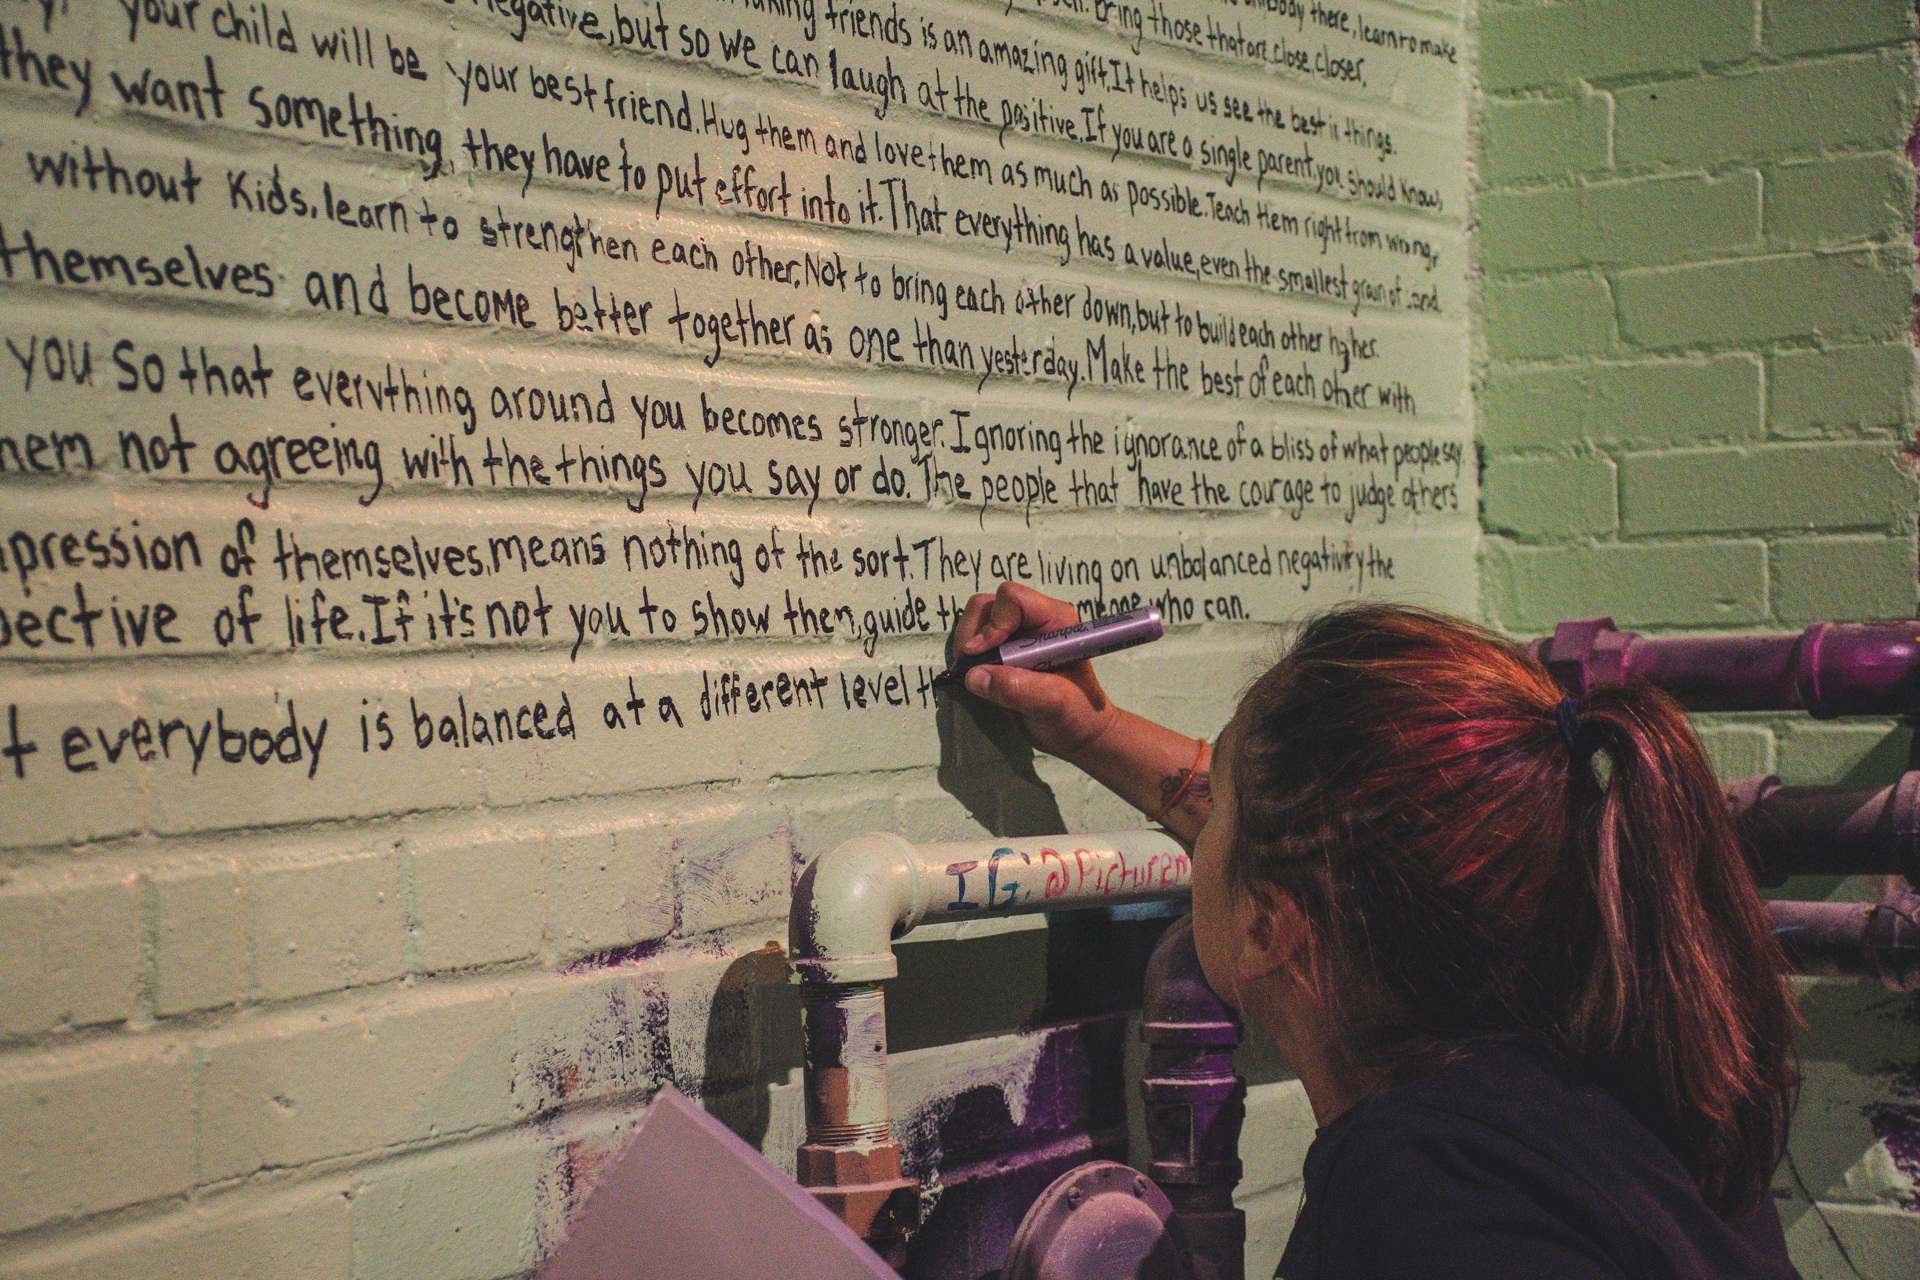 body there, learn to make
Bring those that are close, closer.
making friends is an amazing gift. It helps us see the best in things.
your child will be negative, but so we can laugh at the positive. If you are a single parent, you should know,
they want something, your best friend. Hug them and love them as much as possible. Teach them right from wrong,
without Kids, learn to they have to put effort into it. That everything has a value, even the smallest grain of sand.
themselves and become strengthen each other. Not to bring each other down, but to build each other higher.
you so that everything better together as one than yesterday. Make the best of each other with
not agreeing with the things around you becomes stronger. Ignoring the ignorance of a bliss of what people say
you say or do. The people that have the courage to judge others
pression of themselves, means nothing of the sort. They are living on unbalanced negativity the
pective of life. If it's not you to show them, guide who can.
everybody is balanced at a different level
Sharpie
IG: @Picturem